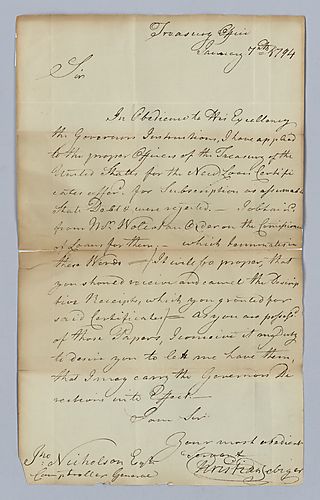 Treasury Office
January 7th 1794
Sir
In Obedience to His Excellency
the Governors Instructions, I have applied
to the proper Officers of the Treasury of the
United States for the New Loan Certifi
cates offerd. for Subscription as assumable
State Debt & were rejected. — I obtaid.
from Mr. Wolcot an Order on the Comissioner
of Loans for them, — which terminates in
these Words — / It will be proper, that
you should receive and cancel the Descrip
tive Receipts, which you granted for
said Certificates / — as you are possess'd
of those Papers, I conceive it my duty
to desire you to let me have them,
that I may carry the Governors Di
rections into Effect.
I am Sir
Your most obedient
servant
Christian Febiger
Jno. Nicholson Esqr.
Comptroller General